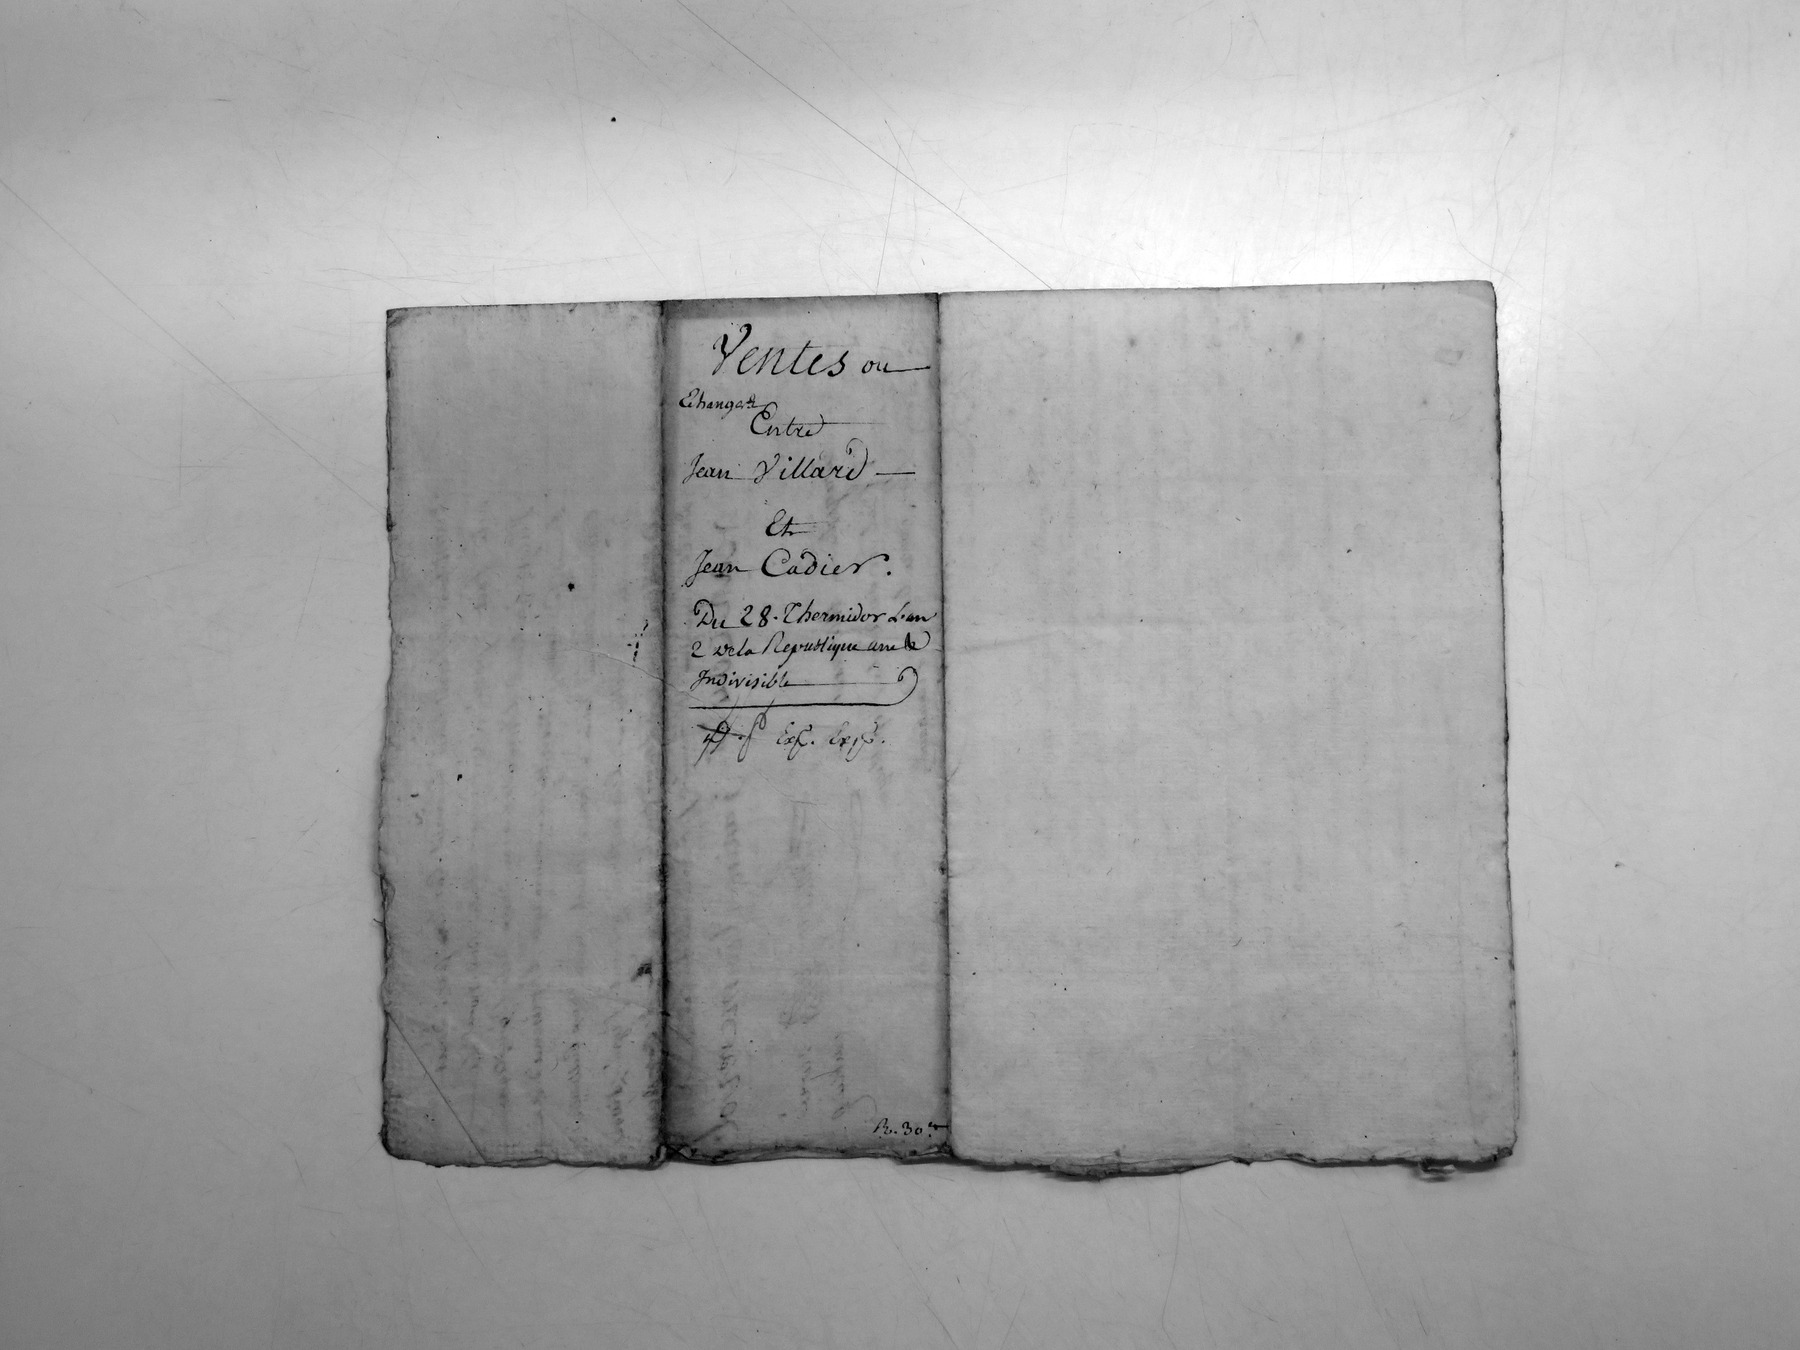 Ventes ou
Echange
Entre
Jean Villard
Et
Jean Cadier.
Du 28. Thermidor L'an
2 de la Republique une &
Indivisible
Exp. Exp.
R. 30.s